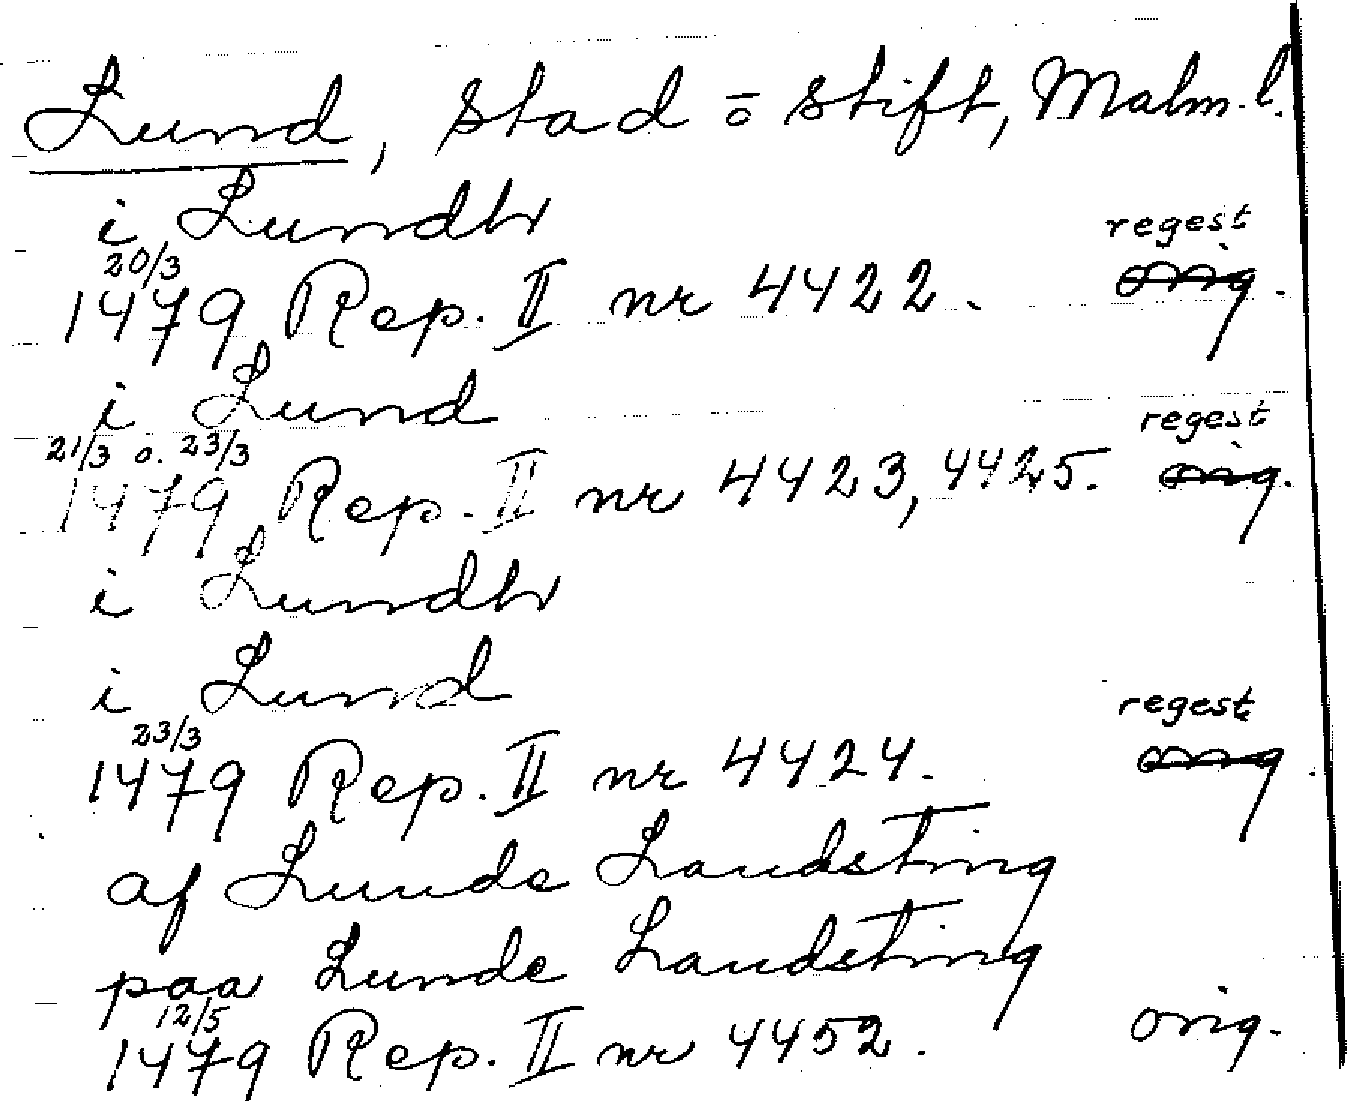 Lund, stad o stift, Malm. l.
i Lundh
20/3 regest
1479 Rep. II nr 4422. orig.
i Lund
21/3 o. 23/3 regest
1479 Rep. II nr 4423, 4425. orig.
i Lundh
i Lund
23/3 regest
1479 Rep. II nr 4424. orig
af Lunde Landsting
paa Lunde Landsting
12/5
1479 Rep. II nr 4452. orig.